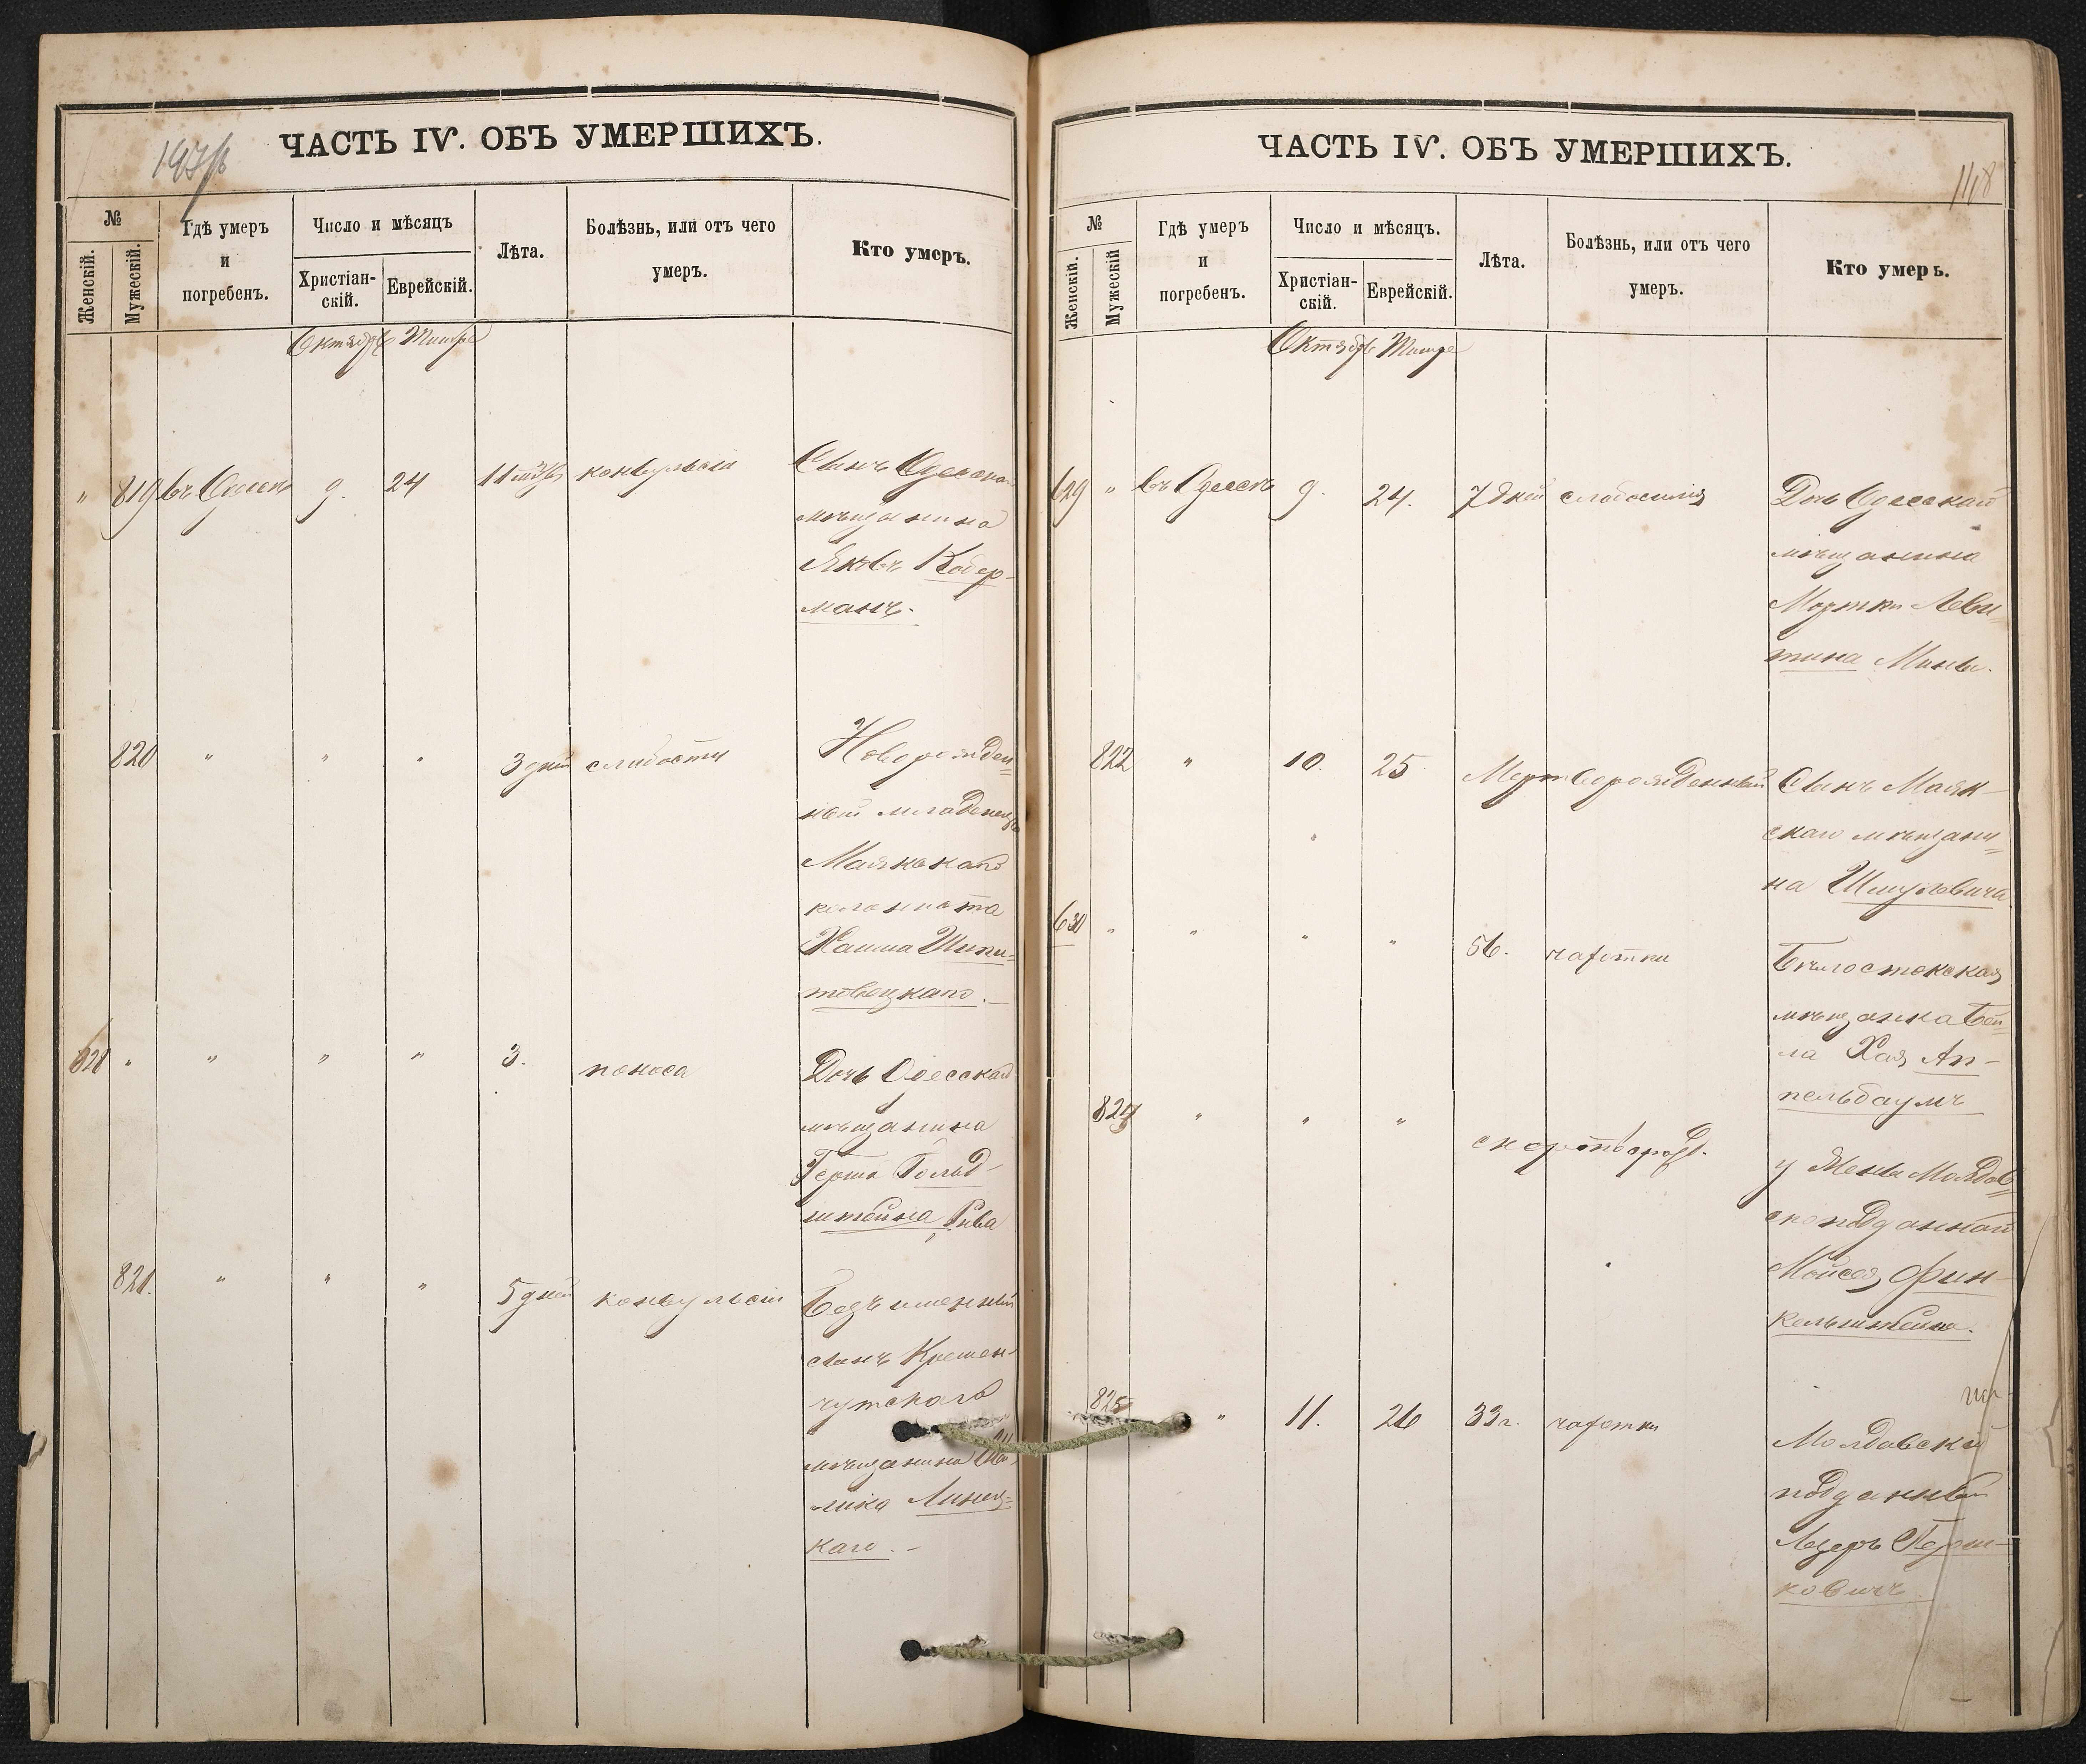 ЧАСТЬ IV. ОБЪ УМЕРШИХЪ.
№
Женскій.
Мужескій.
Гдѣ умеръ
и
погребенъ.
Число и мѣсяцъ
Христіан-
скій.
Еврейскій.
Лѣта.
Болѣзнь, или отъ чего
умеръ.
Кто умеръ.
Октябрь Тишре
„ 819 въ Одессѣ 9. 24 11 конвульсіи Сынъ Одесскаго
мѣщанина
Яковъ Кодер-
манъ.
820 „ „ „ 3 дней слабости Новорожден=
ный младенецъ
Маякскаго
колониста
Хаима
628 „ „ „ „ 3. поноса Дочь Одесскаго
мѣщанина
Герша Гольд-
штейна, Рива
821. „ „ „ 5 дней конвульсіи Безъименный
сынъ Кремен-
чугскаго
мѣщанина
Линец=
каго. -
ЧАСТЬ IV. ОБЪ УМЕРШИХЪ.
118
№
Женскій.
Мужескій
Гдѣ умеръ
и
погребенъ.
Число и мѣсяцъ.
Христіан-
скій.
Еврейскій.
Лѣта.
Болѣзнь, или отъ чего
умеръ.
Кто умеръ.
Октябрь Тишре
629 „ въ Одессѣ 9. 24. 7 дней слабосилія Дочь Одесскаго
мѣщанина
Мортки Леви-
тина
822 „ 10. 25 Мертворожденный Сынъ Маяк-
скаго мѣщани=
на Шмуловича
630 „ „ „ „ 56. чахотки Бѣлостокская
мѣщанка Бей=
ла Хая Ап-
пельбаумъ
824 „ „ „ у жены Молдав=
скоподданнаго
Мойсея Фин-
кельштейна.
825 „ 11. 26 33 г. чахотки
Молдавскій
подданный
Лезеръ Герш-
ковичъ.